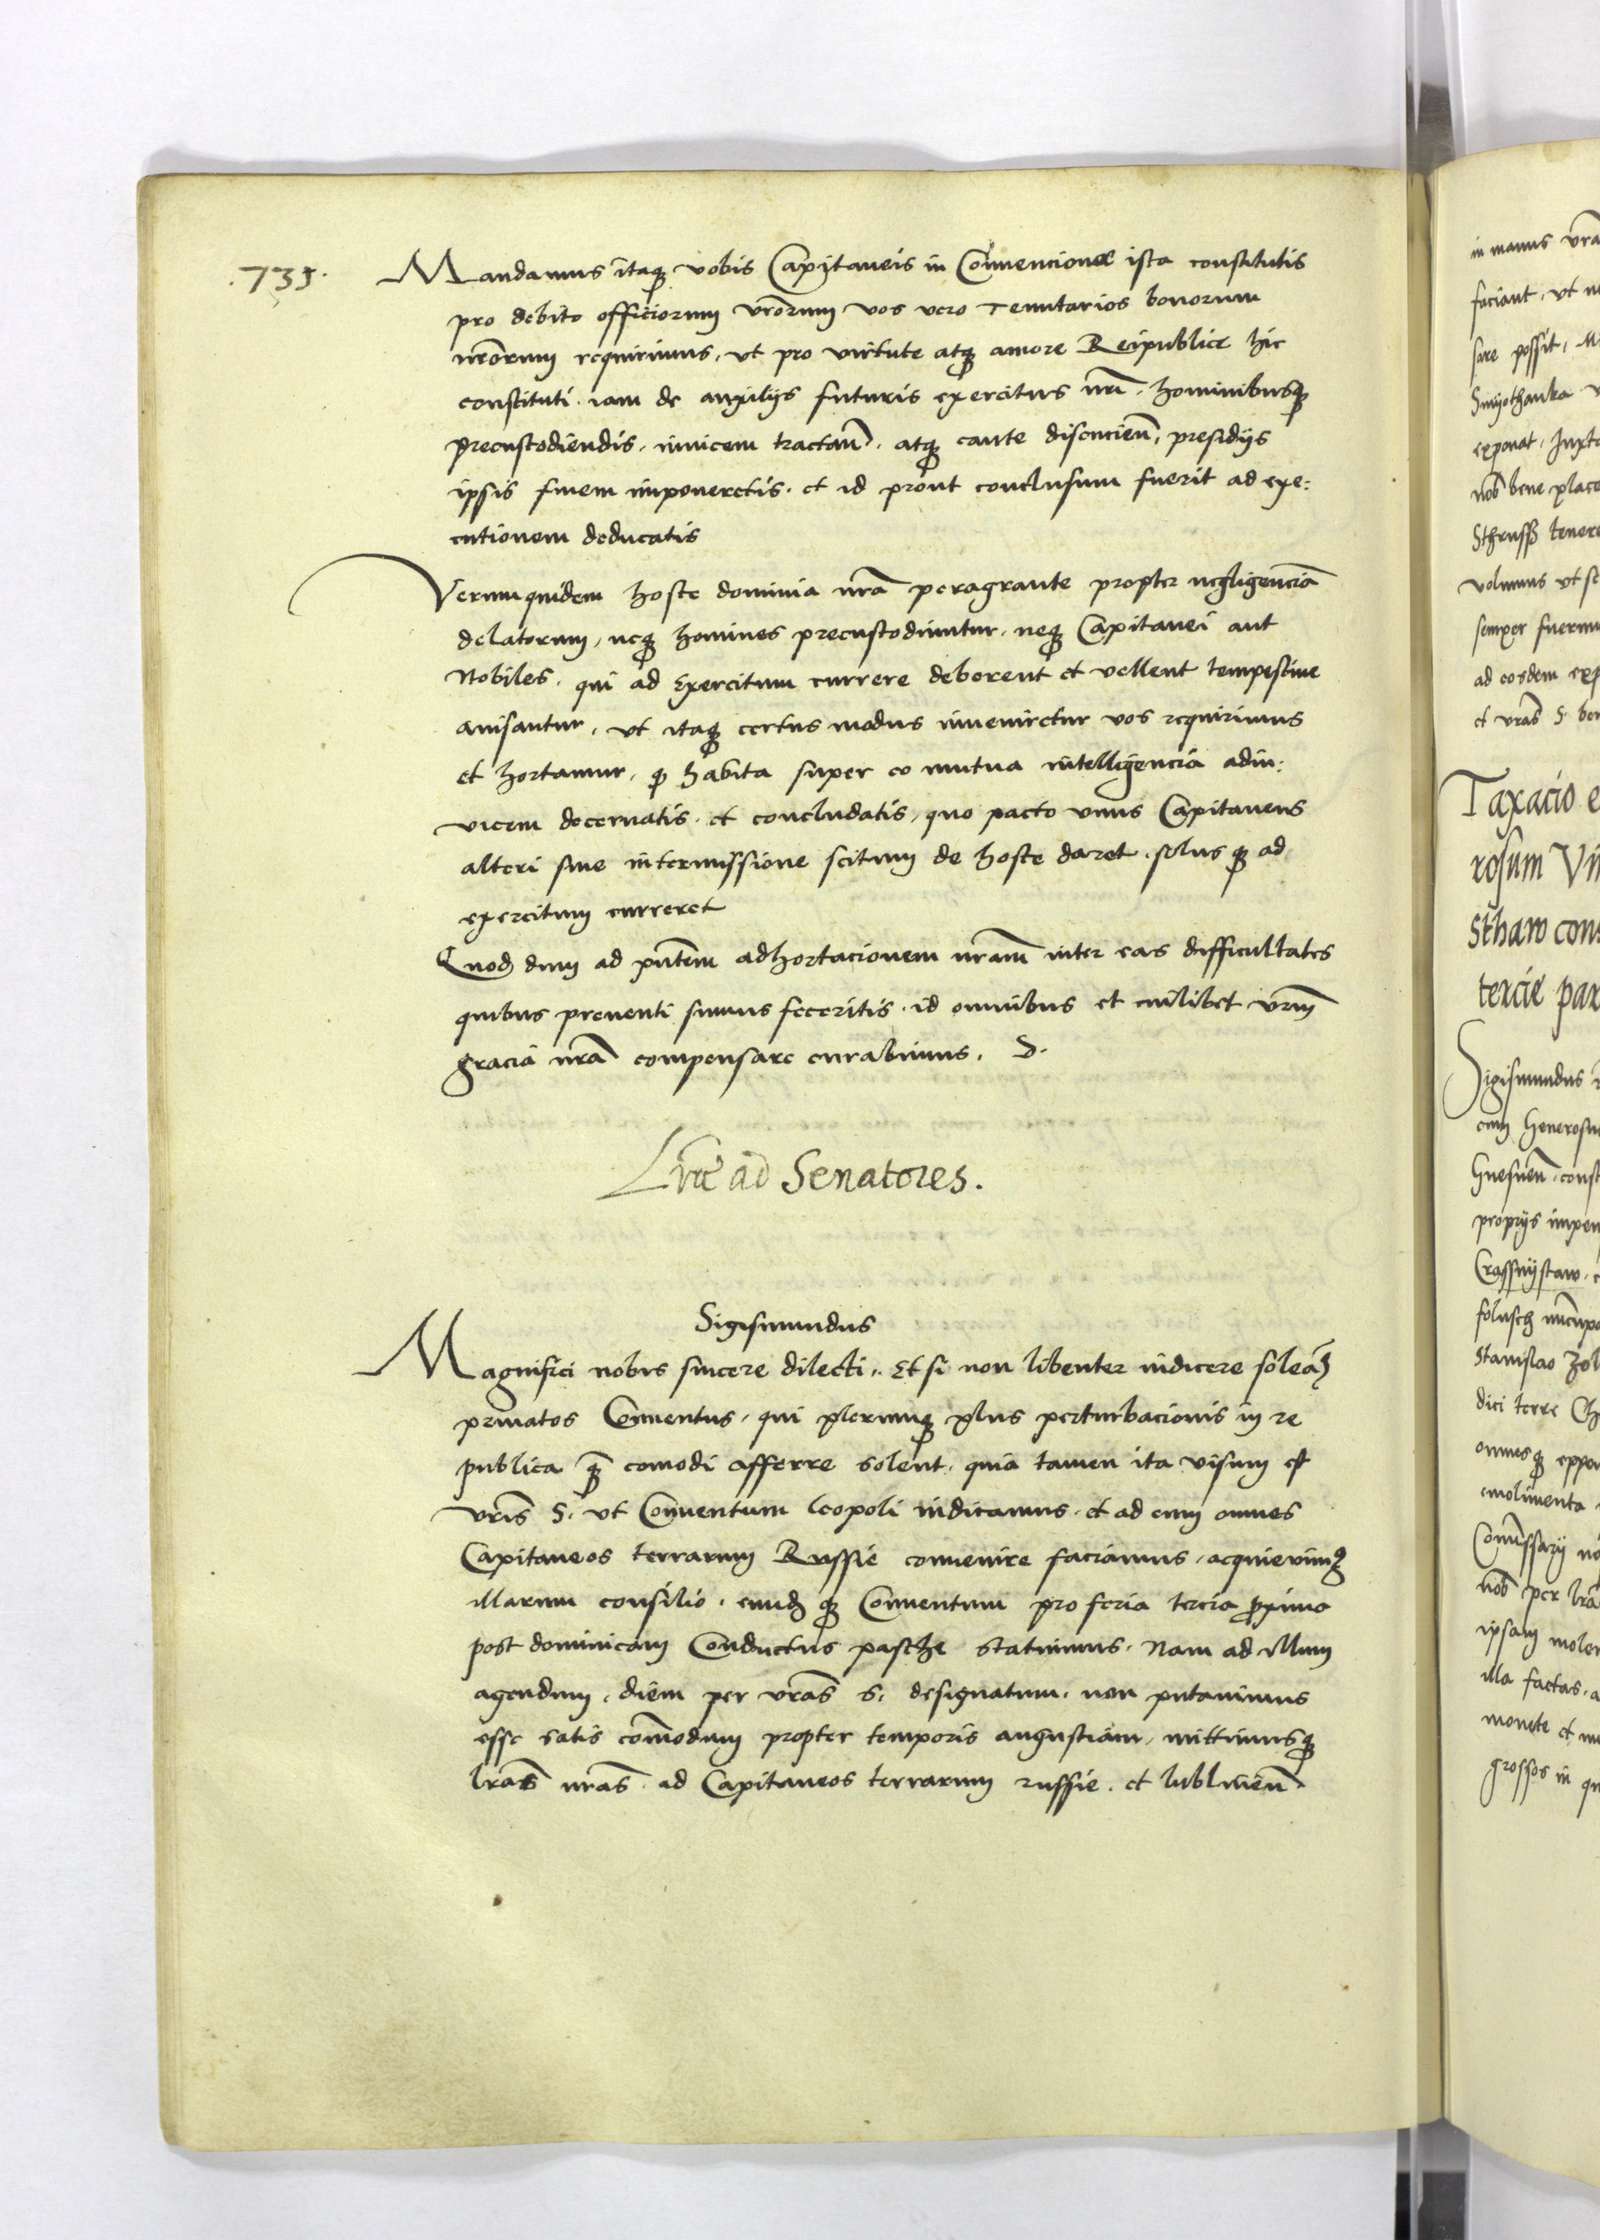 .735.
Mandamus itaq vobis Capitaneis in Convencione ista constitutis
pro debito officiorum vrorum vos vero Tenutarios bonorum
nrorum requirimus, vt pro virtute atq amore Reipublice hic
constituti . iam de auxilijs futuris exercitus nri . hominibusq
precustodiendis . invicem tractan . atq caute discucien, presidijs
ipsis finem imponeretis . et id prout conclusum fuerit ad exe:
cutionem deducatis
Verum quidem hoste dominia nra peragrante propter negligencia
delatorum, neq homines precustodiuntur, neq Capitanei aut
Nobiles . qui ad Exercitum currere deberent et vellent tempestiue
auisantur, vt itaq certus modus inveniretur vos requirimus
et hortamur, q habita super eo mutua intelligencia adin:
vicem decernatis . et concludatis, quo pacto vnus Capitaneus
alteri sine intermissione scitum de hoste daret . solus q ad
exercitum curreret
Quod dum ad pntem adhortacionem nram inter eas difficultates
quibus preuenti sumus feceritis . id omnibus et cuilibet vrm
gracia nra compensare curabimus . D.
Lre ad Senatores.
Sigismundus
Magnifici nobis sincere dilecti . Et si non libenter indicere solea
priuatos Conuentus, qui plerunq plus perturbacionis in re
publica q comodi afferre solent, quia tamen ita visum est
vris S. vt Conuentum leopoli indicamus . et ad eum omnes
Capitaneos terrarum Russie convenire faciamus, acquievim
illarum consilio . eund q Conuentum pro feria tercia proxima
post dominicam Conductus pasche statuimus . Nam ad illum
agendum, diem per vras S. designatum . non putauimus
esse satis commodum propter temporis angustiam, mittimusq
lras nras . ad Capitaneos terrarum russie . et lublinen
in manus vra
faciant, vt
sare possit,
exponat, Juxta
nob bene place
volumus vt
semper
ad eosdem
et vras S.
Taxacio
rosum
stharo
tercie par
Sigismundus
cum Generosu
Gnesnen . const
proprijs impen
Crassnijstaw .
Stanislao
dici terre
omnesq
emolimenta
Commssarij
nob per lra
ipsam
illa factas,
monete et
grossos in